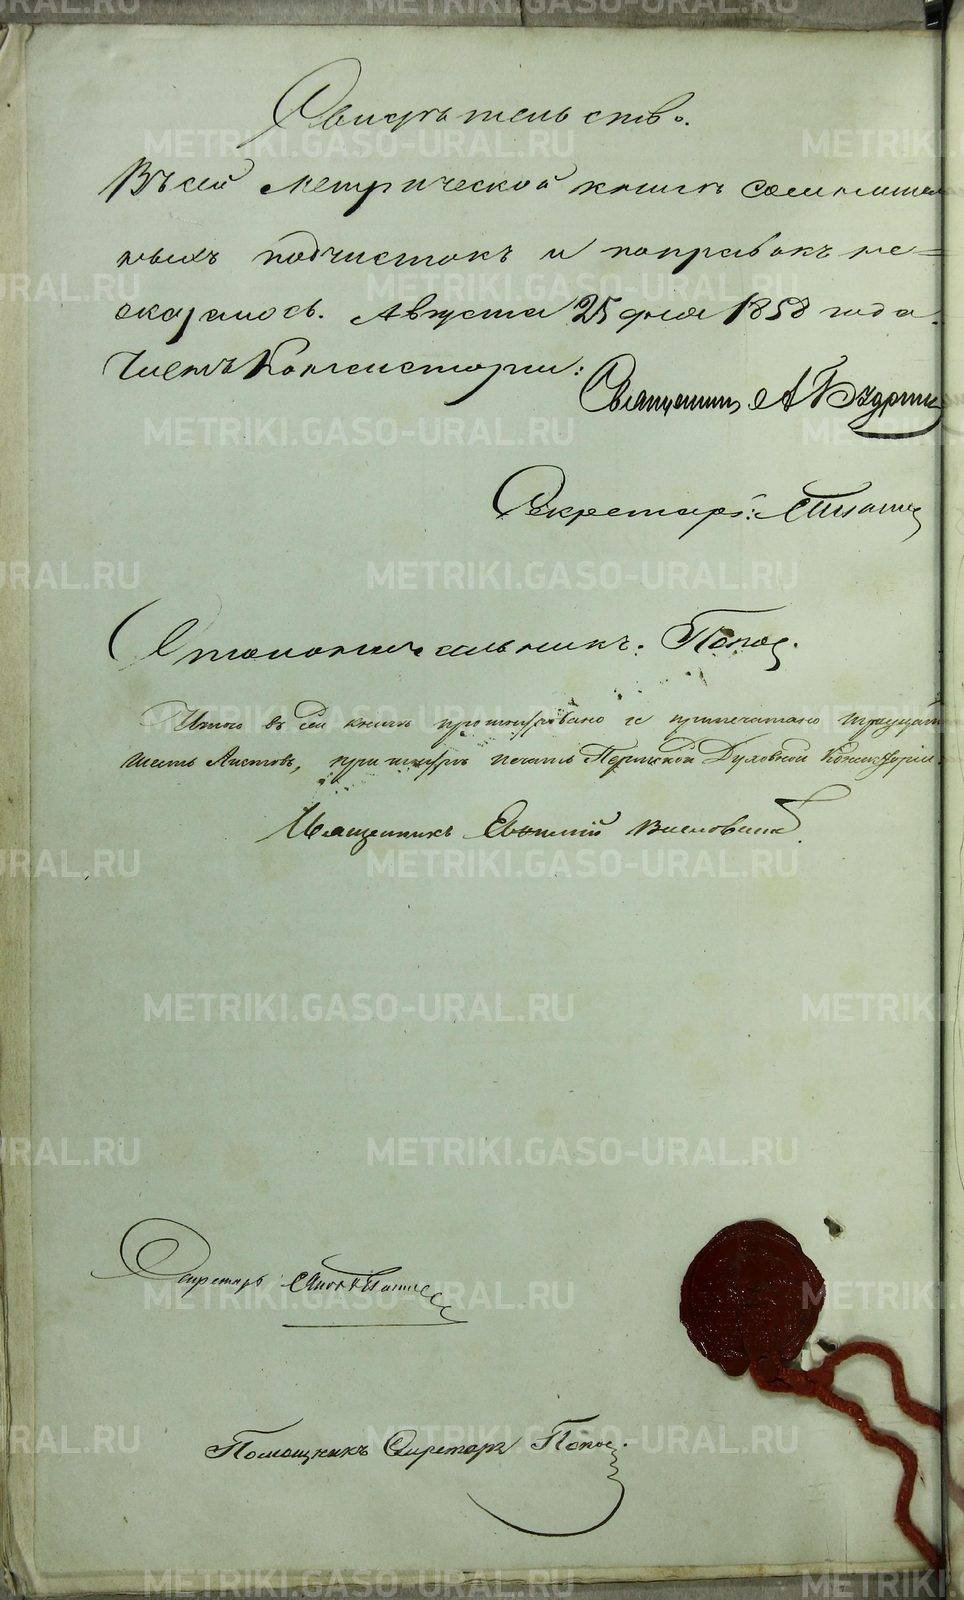 Свидѣтельство.
Въ сей метрической книгѣ сомнитель
ныхъ подчистокъ и поправокъ не=
оказалось. Августа 25 дня 1858 года.
Членъ Консисторiи:
Священникъ А
Секретарь:
Столоначальникъ: Попов.
Итого въ сей книгѣ прошнуровано и припечатано тридцать
шесть листовъ, при шнурѣ печать Пермской Духовной Консисторiи.
Священникъ Евѳимiй
Секретарь
Помощникъ Секретаря Попов.
METRIKI.GASO-URAL.RU